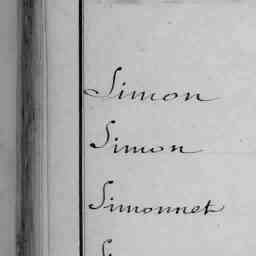 Simon
Simon
Simonnet